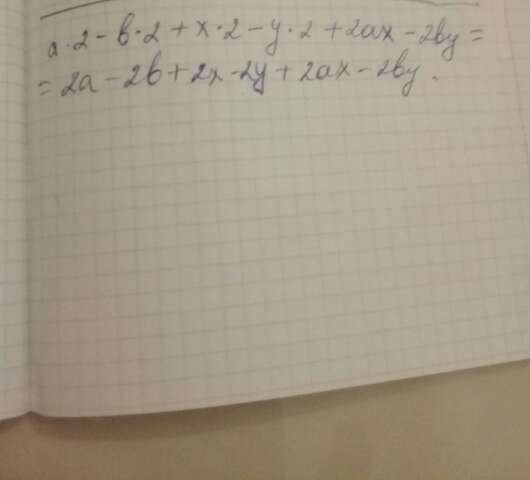 a·2 - b·2 + x·2 - y·2 + 2ax - 2by =
= 2a - 2b + 2x - 2y + 2ax - 2by.